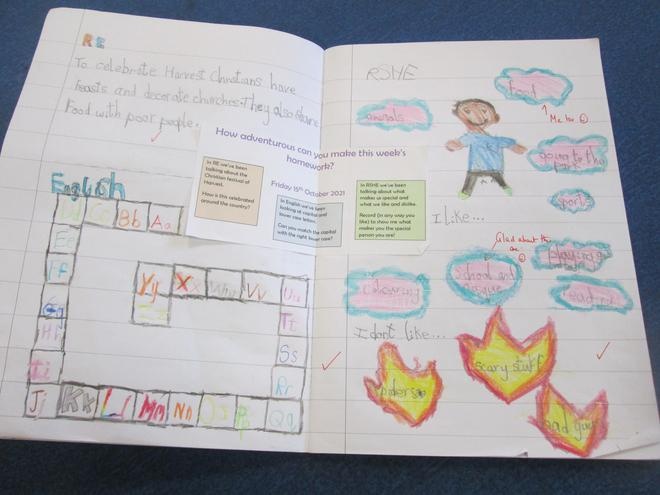 RE
To celebrate Harvest Christians have
feasts and decorate churches. They also share
Food with poor people.
How adventurous can you make this week's
homework?
Friday 15th October 2021
In RE we've been
talking about the
Christian festival of
Harvest.
How is this celebrated
around the country?
In English we've been
looking at capital and
lower case letters.
Can you match the capital
with the right lower case?
In RSHE we've been
talking about what
makes us special and
what we like and dislike.
Record (in any way you
like) to show me what
makes you the special
person you are!
English
Dd Cc Bb Aa
Ee
Ff
Gg
Hh
Ii
Jj Kk Ll Mm Nn Oo Pp Qq
Rr
Ss
Tt
Uu
Vv Ww Xx Yy
Zz
RSHE
food
Me too
animals
going to the
park
sports
I like...
Glad about this
one
playing
school and
colouring
reading
I don't like...
scary stuff
spiders
bad guys